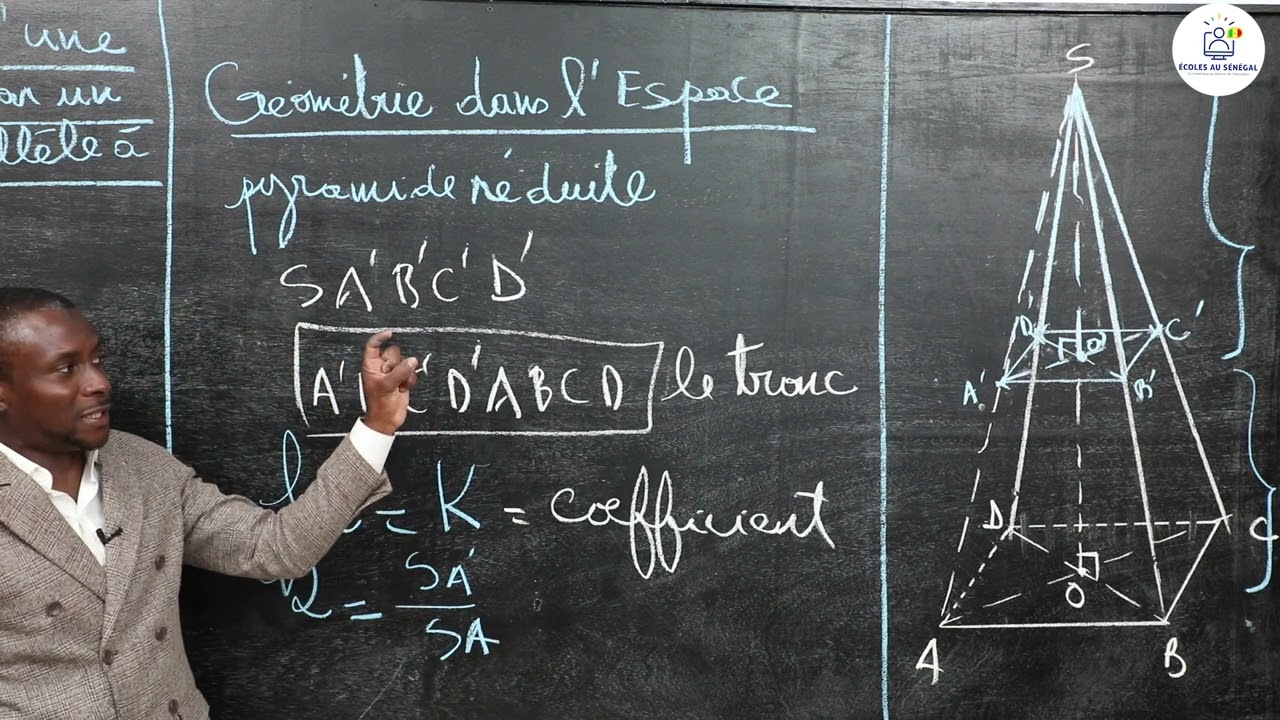 une
un
à
Géométrie dans l'Espace
pyramide réduite
SA'B'C'D'
A' C' D'ABCD le tronc
= K = coefficient
= SA'
SA
S
D' O' C'
A' B'
D C
O
A B
ÉCOLES AU SÉNÉGAL